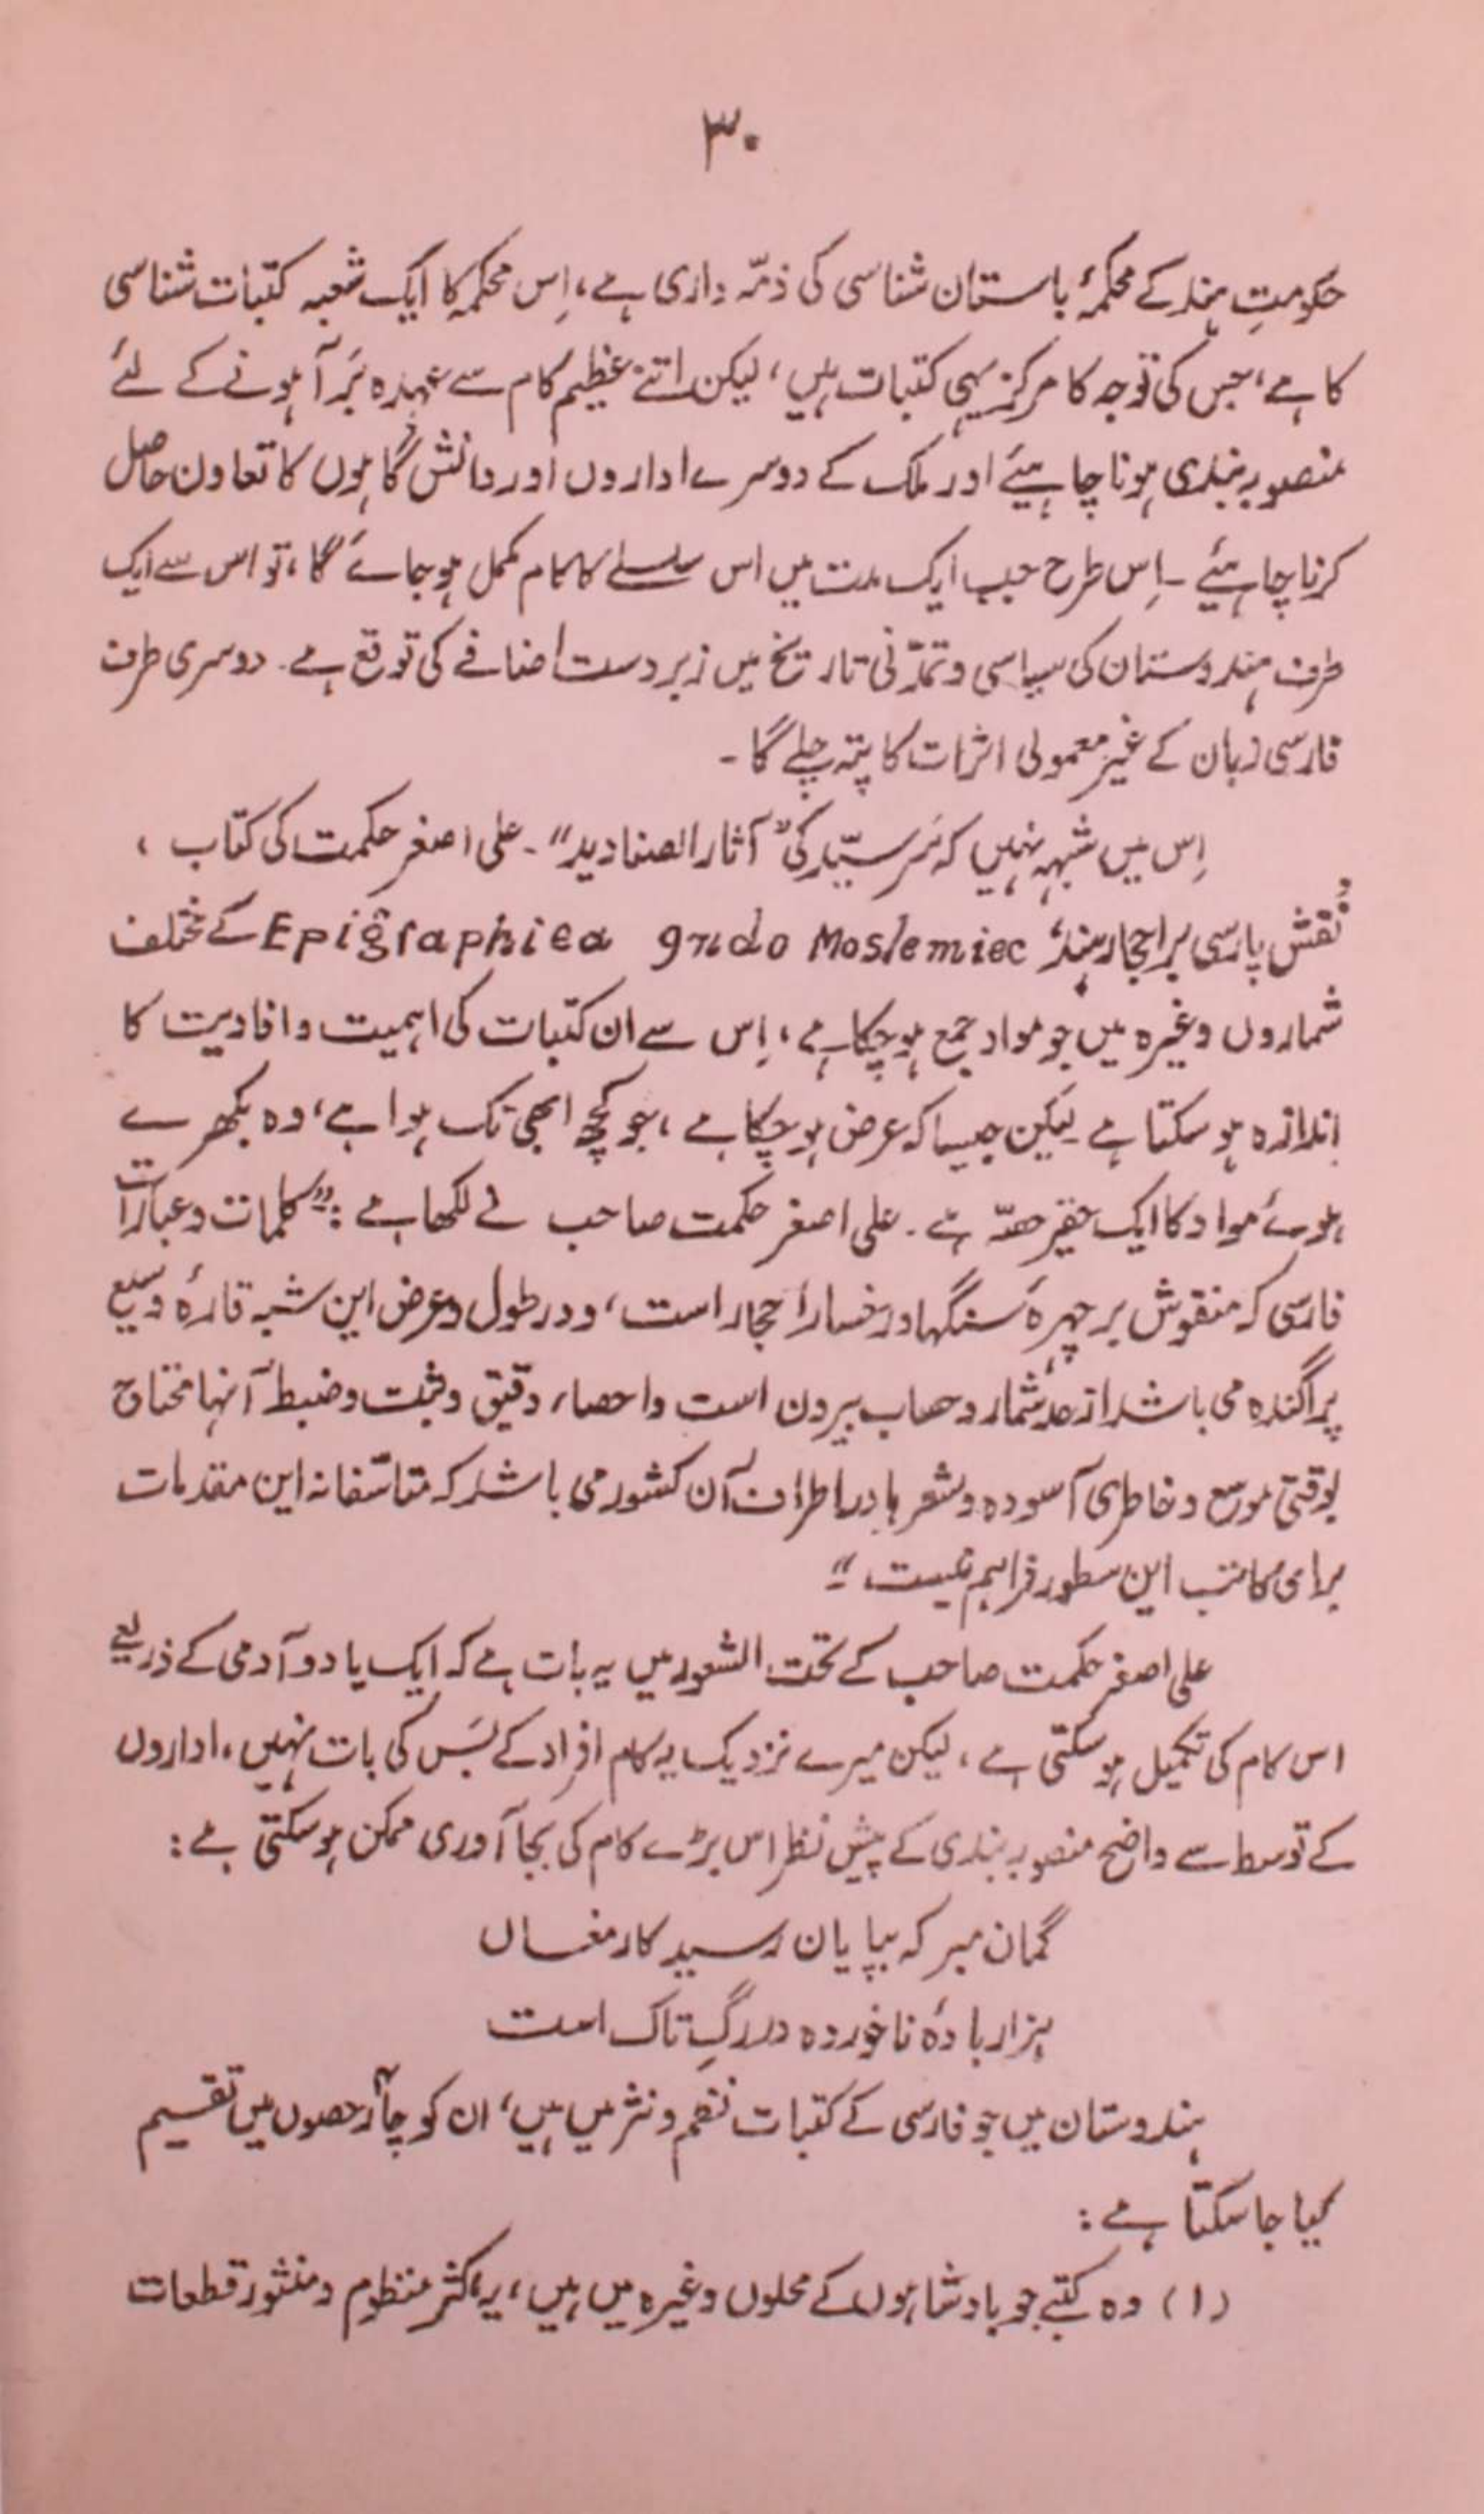 ۳۰
حکومتِ ہند کے محکمۂ باستان شناسی کی ذمّہ داری ہے، اِس محکمہ کا ایک شعبہ کتبات شناسی
کا ہے، جس کی توجہ کا مرکز یہی کتبات ہیں، لیکن اتنے عظیم کام سے عہدہ بَرآ ہونے کے لئے
منصوبہ بندی ہونا چاہیئے اور ملک کے دوسرے اداروں اور دانش گاہوں کا تعاون حاصل
کرنا چاہئیے ۔ اِس طرح جب ایک مدت میں اس سلسلے کا کام مکمل ہو جائے گا، تو اس سے ایک
طرف ہندوستان کی سیاسی و تمدّنی تاریخ میں زبردست اضافے کی توقع ہے۔ دوسری طرف
فارسی زبان کے غیر معمولی اثرات کا پتہ چلے گا ۔
اِس میں شبہہ نہیں کہ سَر سیّد کی "آثار الصنادید"۔ علی اصغر حکمت کی کتاب ،
"نقش پارسی بر احجار ہند" Epigraphiea gndo Moslemiec کے مختلف
شماروں وغیرہ میں جو مواد جمع ہو چکا ہے، اِس سے ان کتبات کی اہمیت و افادیت کا
اندازہ ہو سکتا ہے لیکن جیسا کہ عرض ہو چکا ہے ، جو کچھ ابھی تک ہوا ہے، وہ بکھرے
ہوئے مواد کا ایک حقیر حصّہ ہے ۔ علی اصغر حکمت صاحب نے لکھا ہے : "کلمات و عبارات
فارسی کہ منقوش بر چہرۂ سنگہا و رخسار احجار است، و در طول و عرض این شبہ قارۂ وسیع
پراگندہ می باشد از حدّ شمار و حساب بیرون است و احصاء دقیق و ثبت و ضبط آنہا محتاج
بوقتی موسع و خاطری آسودہ و سفرہا در اطراف آن کشور می باشد کہ متاسّفانہ این مقدمات
برای کاتب این سطور فراہم نیست ۔"
علی اصغر حکمت صاحب کے تحت الشعور میں یہ بات ہے کہ ایک یا دو آدمی کے ذریعے
اس کام کی تکمیل ہو سکتی ہے ، لیکن میرے نزدیک یہ کام افراد کے بَس کی بات نہیں ، اداروں
کے توسط سے واضح منصوبہ بندی کے پیش نظر اس بڑے کام کی بجا آوری ممکن ہو سکتی ہے :
گمان مبر کہ بپایان رسید کار مغاں
ہزار بادۂ ناخوردہ در رگِ تاک است
ہندوستان میں جو فارسی کے کتبات نظم و نثر میں ہیں، ان کو چار حصوں میں تقسیم
کیا جا سکتا ہے :
(۱) وہ کتبے جو بادشاہوں کے محلوں وغیرہ میں ہیں، یہ اکثر منظوم و منثور قطعات